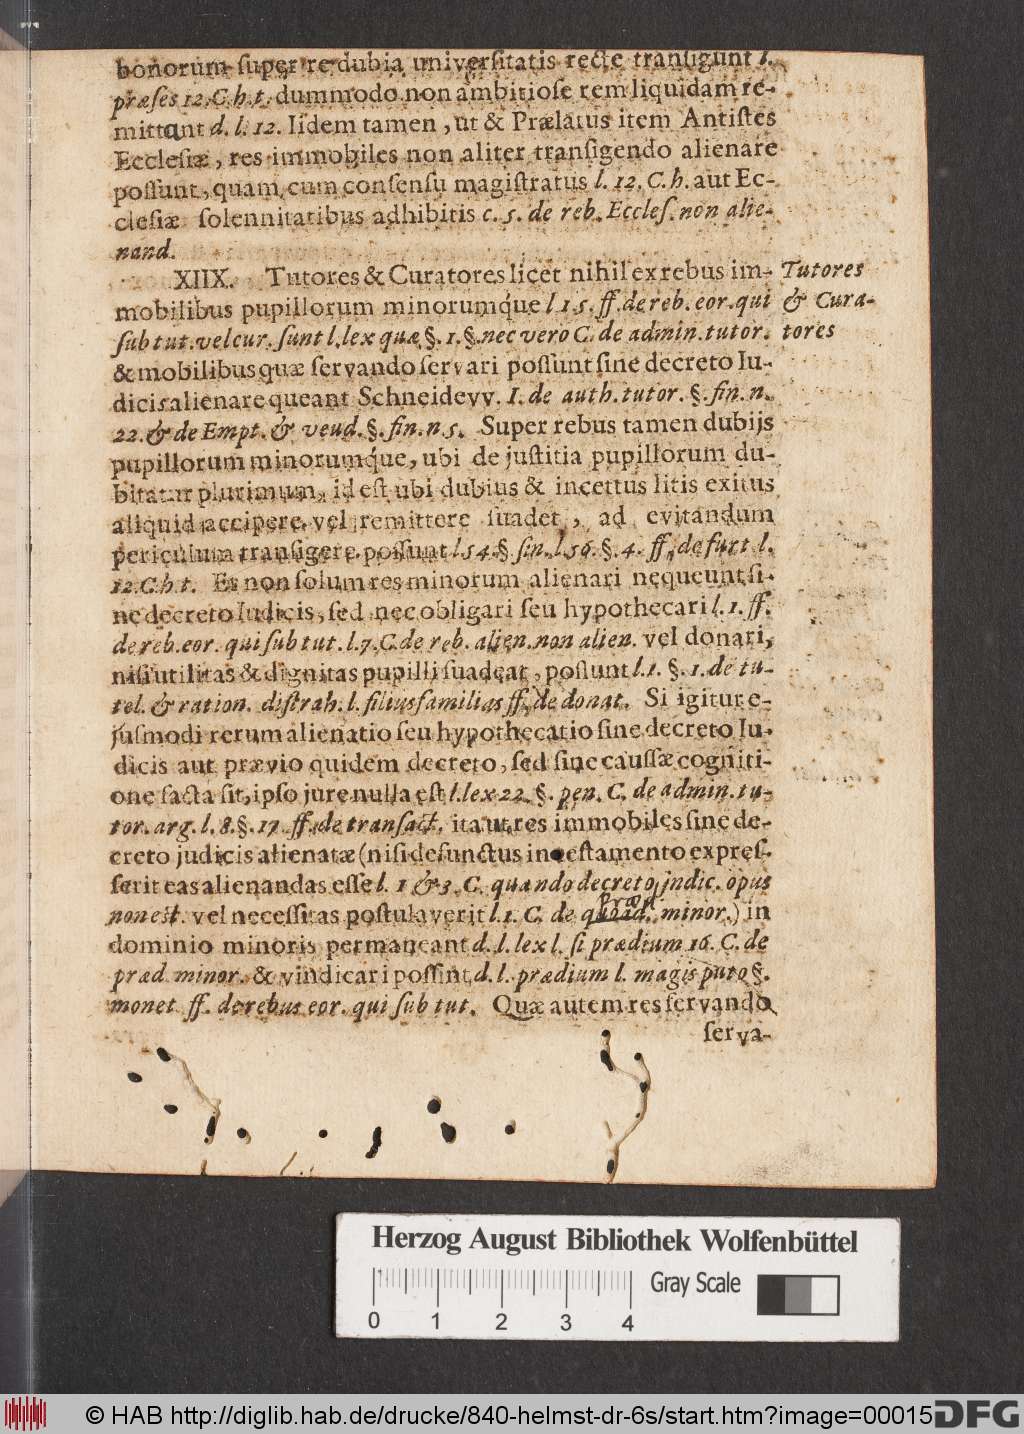 bonorum super re dubia universitatis recte transigunt l.
præses 12. C. h. t. dummodo non ambitiose rem liquidam re-
mittant d. l. 12. Iidem tamen, ut & Prælatus item Antistes
Ecclesiæ, res immobiles non aliter transigendo alienare
possunt, quam cum consensu magistratus l. 12. C. h. aut Ec-
clesiæ solennitatibus adhibitis c. 5. de reb. Eccles. non alie-
nand.
XIIX. Tutores & Curatores licet nihil ex rebus im-
mobilibus pupillorum minorumque l 1. 5. ff. de reb. eor. qui
sub tut. vel cur. sunt l. lex quæ §. 1. §. nec vero C. de admin. tutor.
& mobilibus quæ servando servari possunt sine decreto Iu-
dicis alienare queant Schneidevv. I. de auth. tutor. §. fin. n.
22. & de Empt. & vend. §. fin. n 5. Super rebus tamen dubijs
pupillorum minorumque, ubi de justitia pupillorum du-
bitatur plurimum, id est ubi dubius & incertus litis exitus
aliquid accipere vel remittere suadet, ad evitandum
periculum transigere possunt l 54. §. fin. l. 56. §. 4. ff. de furt l.
12. C. h. t. Et non solum res minorum alienari nequeunt si-
ne decreto Iudicis, sed nec obligari seu hypothecari l. 1. ff.
de reb. eor. qui sub tut. l. 7. C. de reb. alien. non alien. vel donari,
nisi utilitas & dignitas pupilli suadeat, possunt l. 1. §. 1. de tu-
tel. & ration. distrah. l. filiusfamilias ff. de donat. Si igitur e-
jusmodi rerum alienatio seu hypothecatio sine decreto Iu-
dicis aut prævio quidem decreto, sed sine caussæ cogniti-
one facta sit, ipso jure nulla est l. lex 22. §. pen. C. de admin. tu-
tor. arg. l. 8. §. 17 ff. de transact. ita ut res immobiles sine de-
creto judicis alienatæ (nisi defunctus in testamento expres-
serit eas alienandas esse l. 1 & 3. C. quando decreto judic. opus
non est. vel necessitas postulaverit l. 1. C. de quoad. minor.) in
præd
dominio minoris permaneant d. l. lex l. si prædium 16. C. de
præd. minor. & vindicari possint d. l. prædium l. magis puto §.
monet ff. de rebus eor. qui sub tut. Quæ autem res servando
serva-
Tutores
& Cura-
tores
Herzog August Bibliothek Wolfenbüttel
0 1 2 3 4
Gray Scale
© HAB http://diglib.hab.de/drucke/840-helmst-dr-6s/start.htm?image=00015
DFG